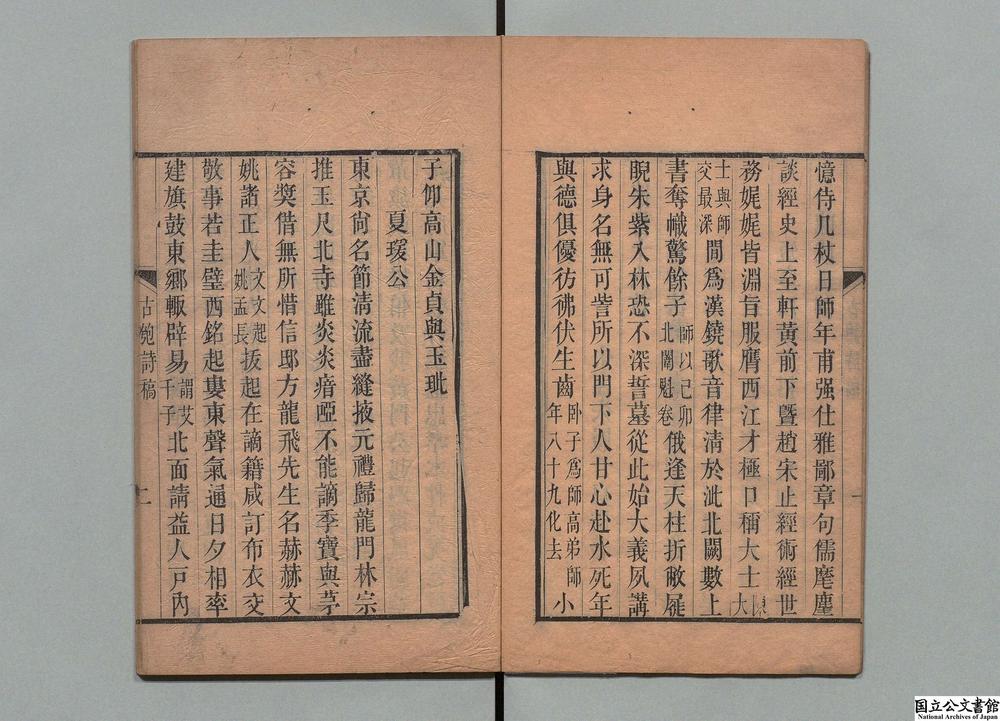 憶侍几杖日師年甫强仕雅鄙章句儒麾麈
談經史上至軒黃前下曁趙宋止經術經世
務娓娓皆淵旨服膺西江才極口稱大士陳大
士與師交最深閒爲漢鐃歌音律清於沘北闕數上
書奪幟驚餘子師以己卯北闈魁卷俄逢天柱折敝屣
睨朱紫入林恐不深誓墓從此始大義夙講
求身名無可訾所以門下人甘心赴水死年
與德俱優彷彿伏生齒臥子爲師高弟師小年八十九化去
子仰高山金貞與玉玼
夏瑗公
東京尙名節清流盡縫掖元禮歸龍門林宗
推玉尺北寺雖炎炎瘖啞不能謫季寶與茅
容奬借無所惜信邸方龍飛先生名赫赫文
姚諸正人文文起姚孟長扳起在謫籍咸訂布衣交
敬事若圭璧西銘起婁東聲氣通日夕相率
建旗鼓東鄉輙辟易謂艾千子北面請益人戸內
古𠣻詩稿
二
国立公文書館
National Archives of Japan